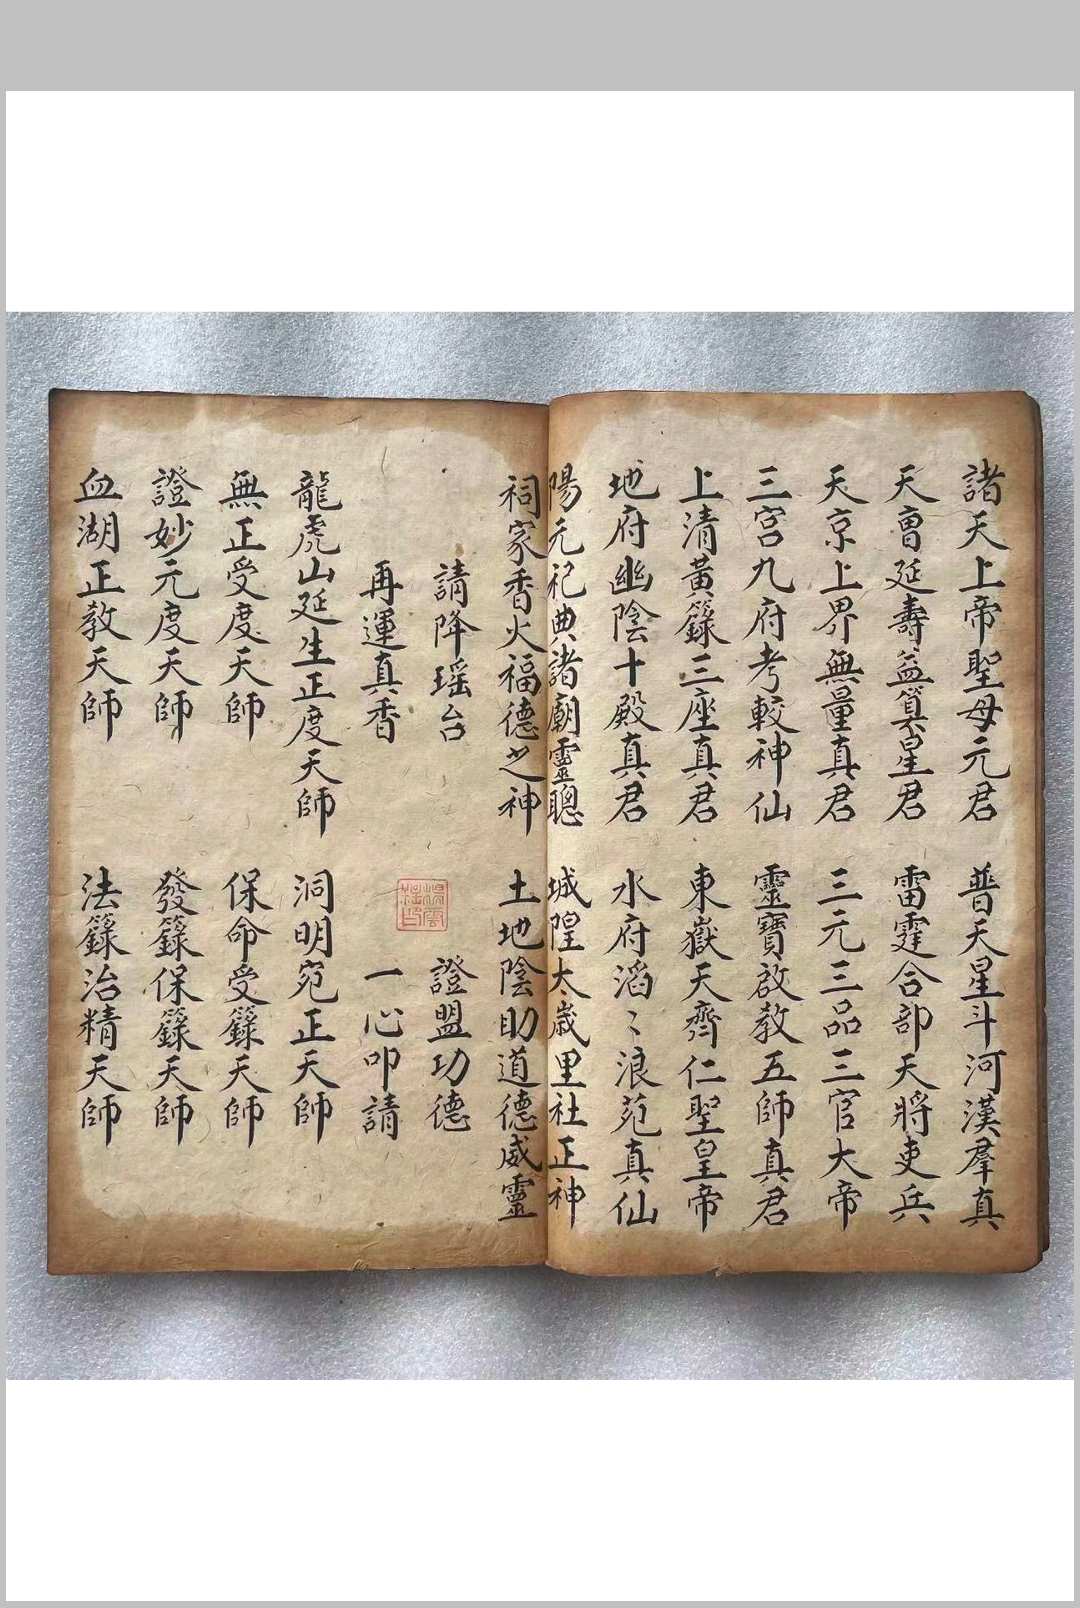 諸天上帝聖母元君　普天星斗河漢羣真
天曹延壽益算星君　雷霆合部天將吏兵
天京上界無量真君　三元三品三官大帝
三宮九府考較神仙　靈寶啟教五師真君
上清黃籙三座真君　東嶽天齊仁聖皇帝
地府幽陰十殿真君　水府滔〻浪苑真仙
陽元祀典諸廟靈聰　城隍太歲里社正神
祠家香火福德之神　土地陰助道德威靈
請降瑶台　證盟功德
再運真香　一心叩請
龍虎山延生正度天師　洞明宛正天師
無正受度天師　保命受籙天師
證妙元度天師　發籙保籙天師
血湖正教天師　法籙治精天師